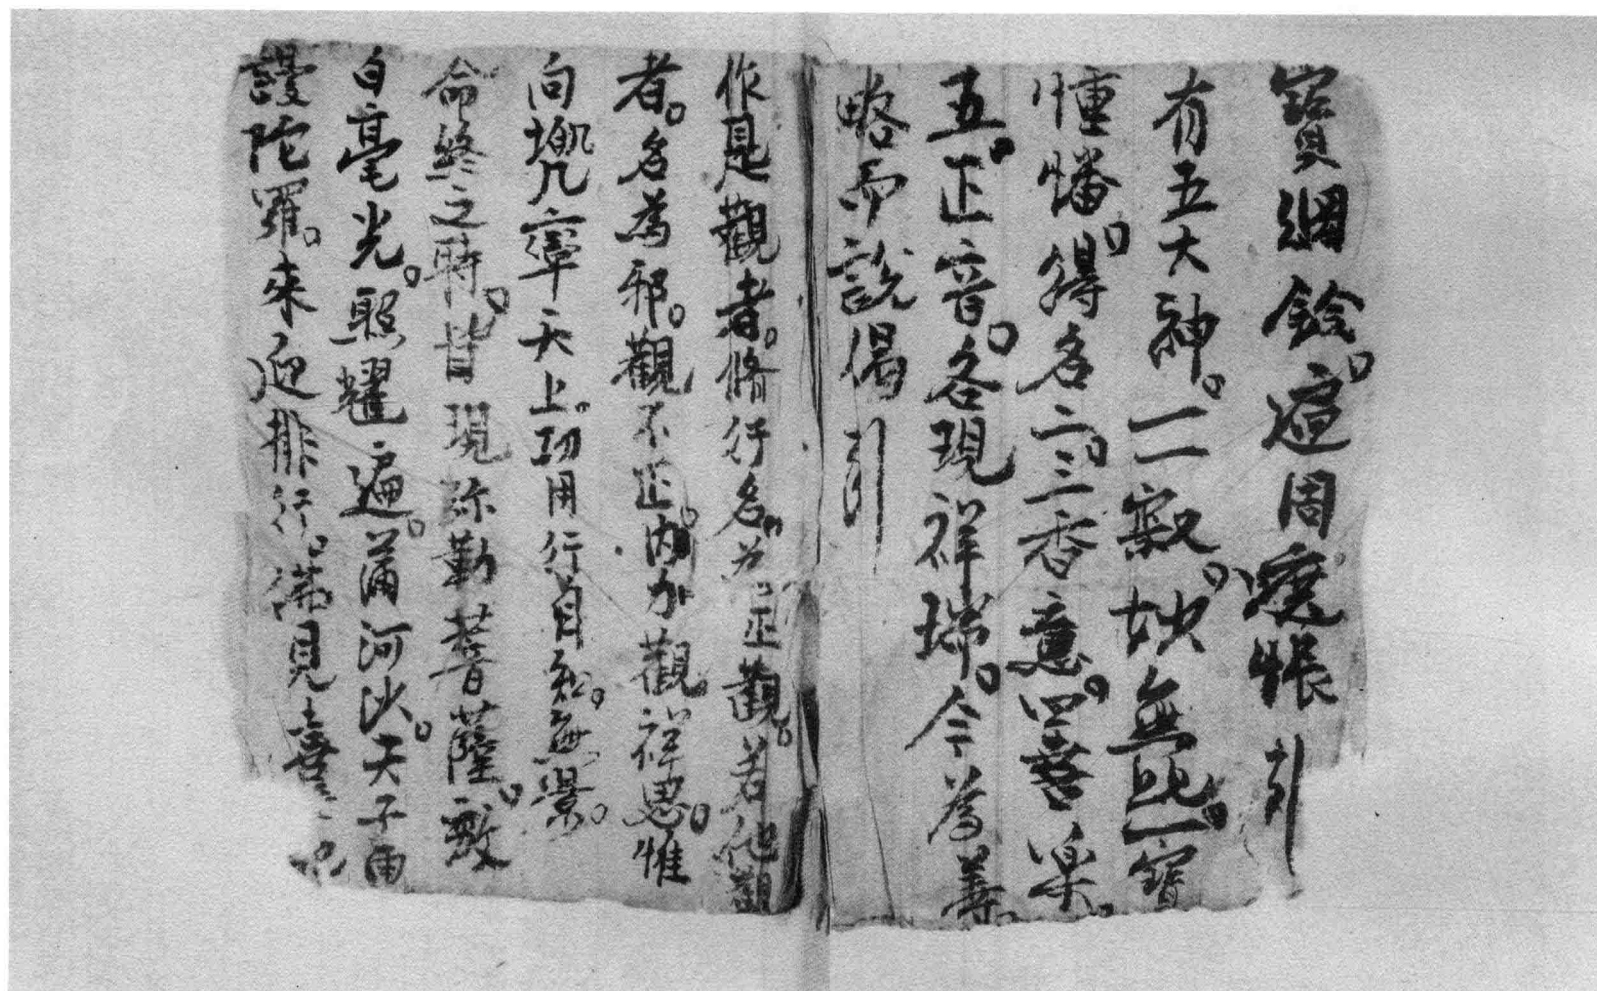 寶網鈴。遍周寶帳 引
有五大神。一一 殿。妙無比。一寶
幢幡。得名二。三香意。四喜樂。
五。正音。各現祥瑞。今為善
略而說偈 引
作是觀者。脩行名。為正觀。若他觀
者。名為邪。觀不正。內加觀祥思。惟
向 凡率天上。功用行自知。每景。
命終之時。皆現弥勒菩薩。放
白毫光。照耀遍。蒲河沙。天子雨
謾陀羅。來迎排行。佛見喜